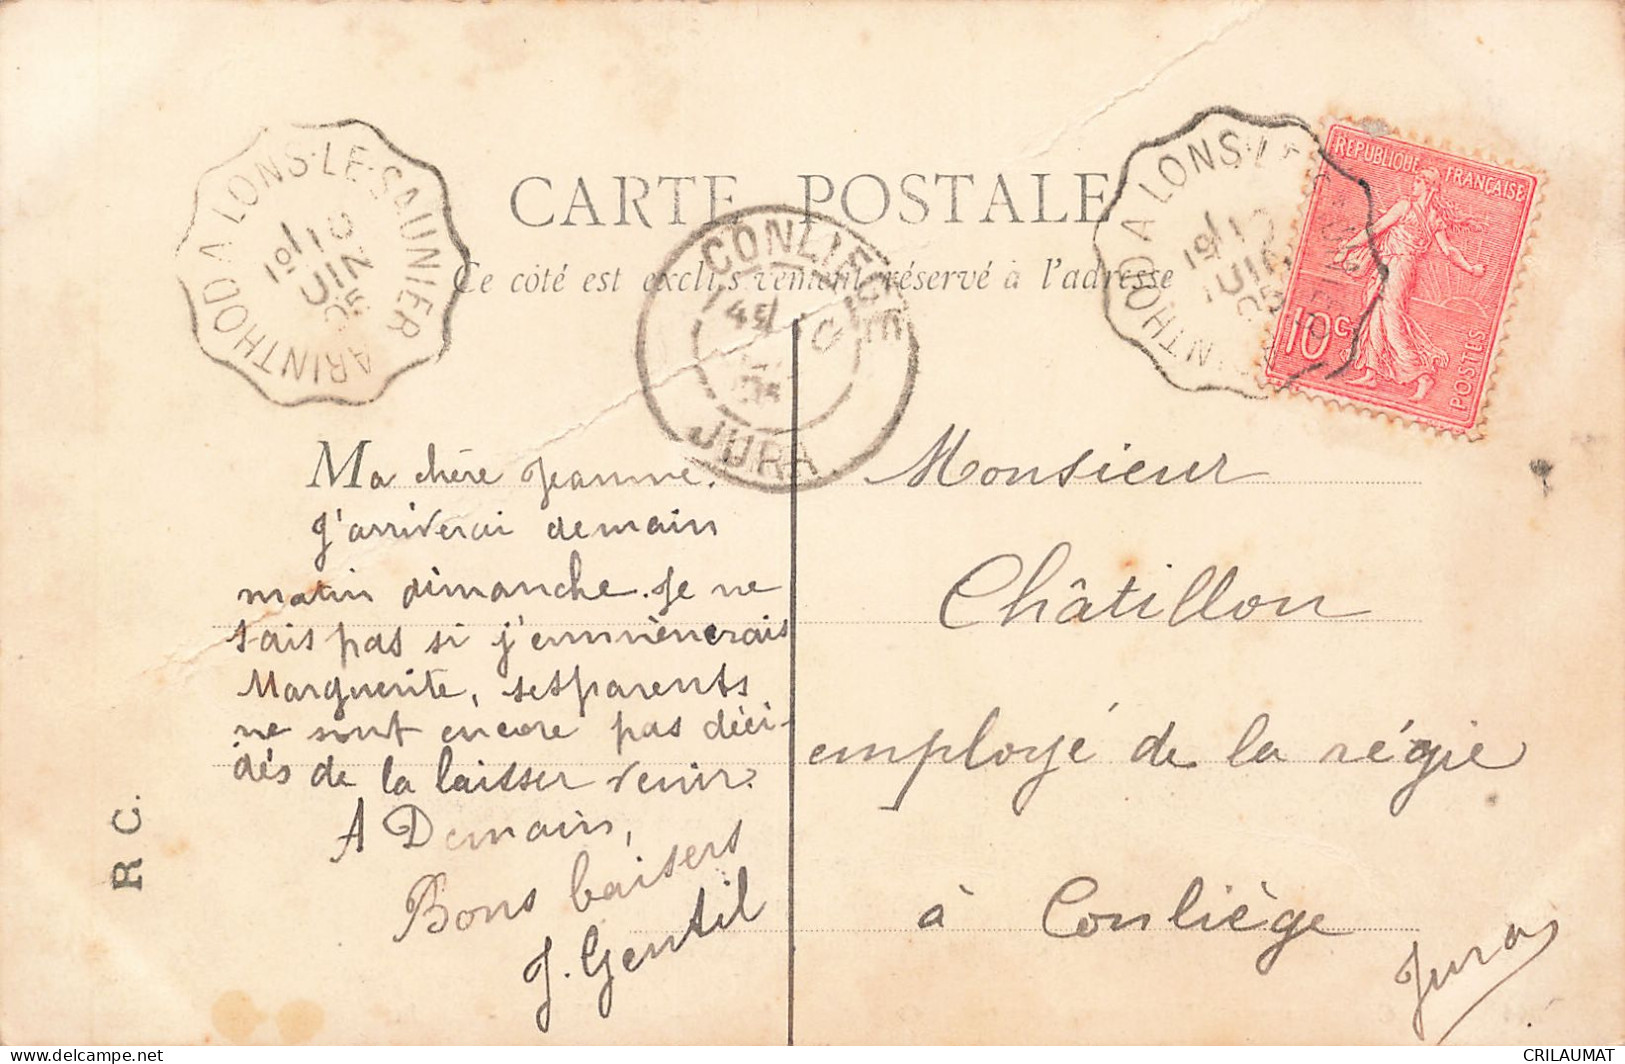 CARTE POSTALE
Ce côté est exclusivement réservé à l'adresse
ARINTHOD A LONS-LE-SAUNIER
10
JUIN
05
CONLIEGE
JURA
ARINTHOD A LONS-LE-SAUNIER
JUIN
05
REPUBLIQUE FRANÇAISE
10c
POSTES
Ma chère Jeanne.
J'arriverai demain
matin dimanche. Je ne
sais pas si j'emmènerais
Marguerite, ses parents
ne sont encore pas déci-
dés de la laisser venir.
A Demain,
Bons baisers
J. Gentil
Monsieur
Châtillon
employé de la régie
à Conliège
Jura
R C.
delcampe.net
CRILAUMAT